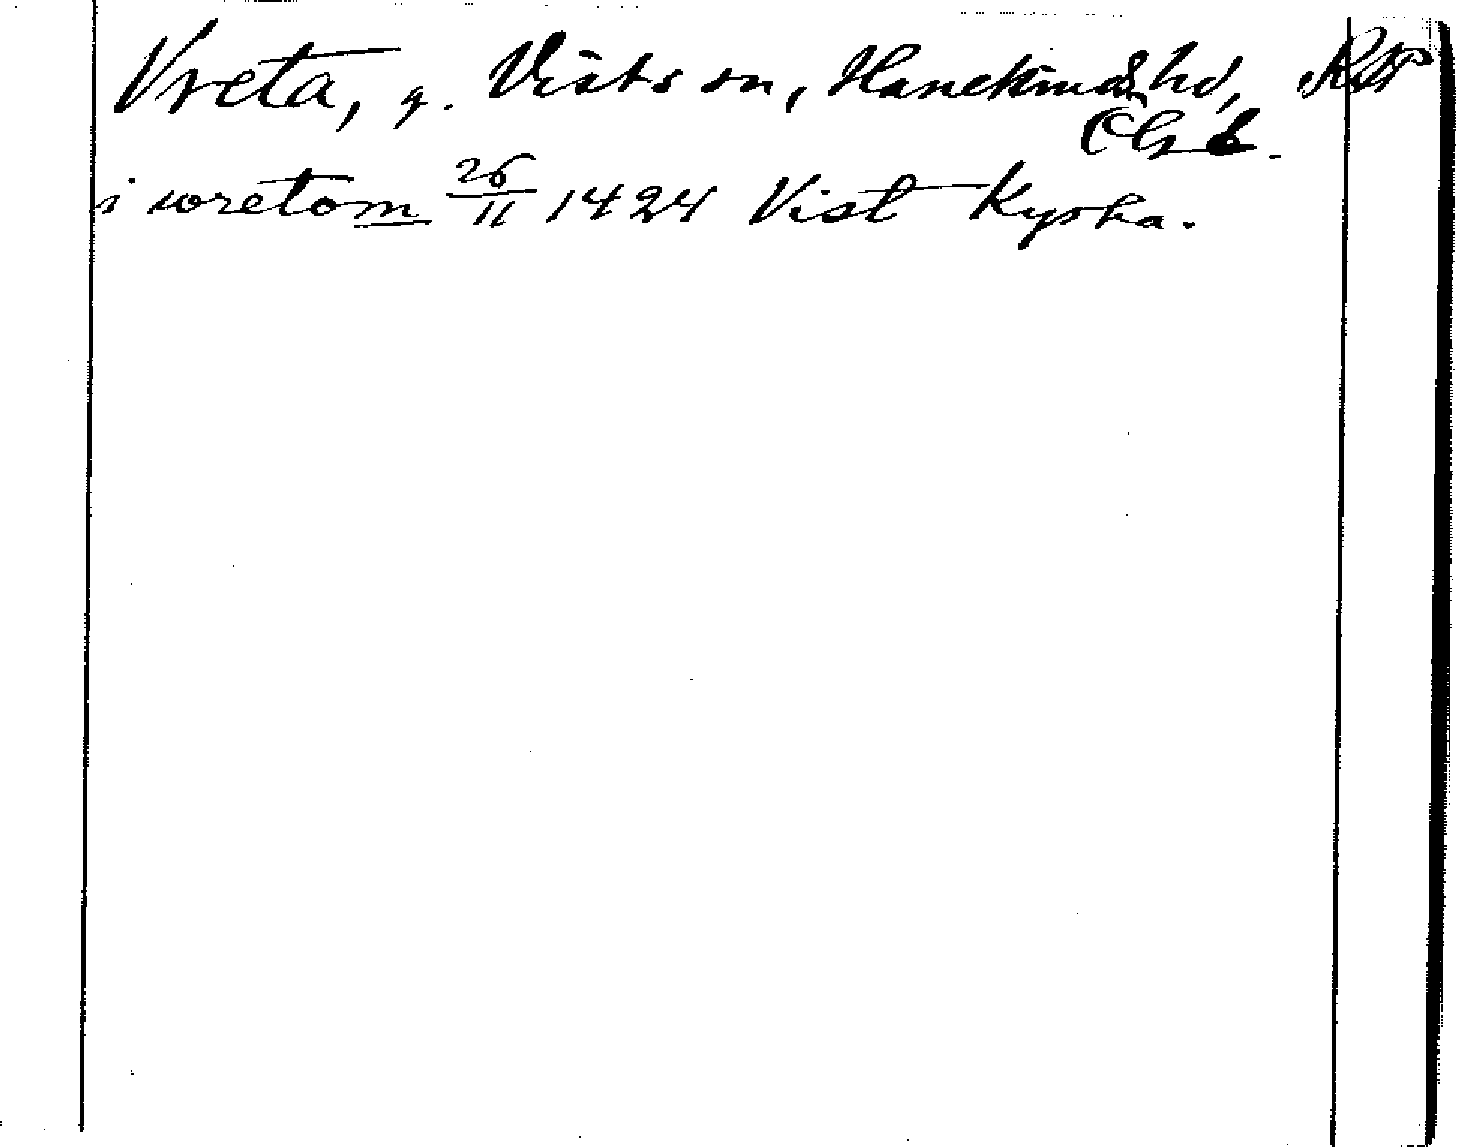 Vreta, g. Vists sn, Hanekinds hd,
ÖG L.
i wretom 26/11 1424 Vist Kyrka.